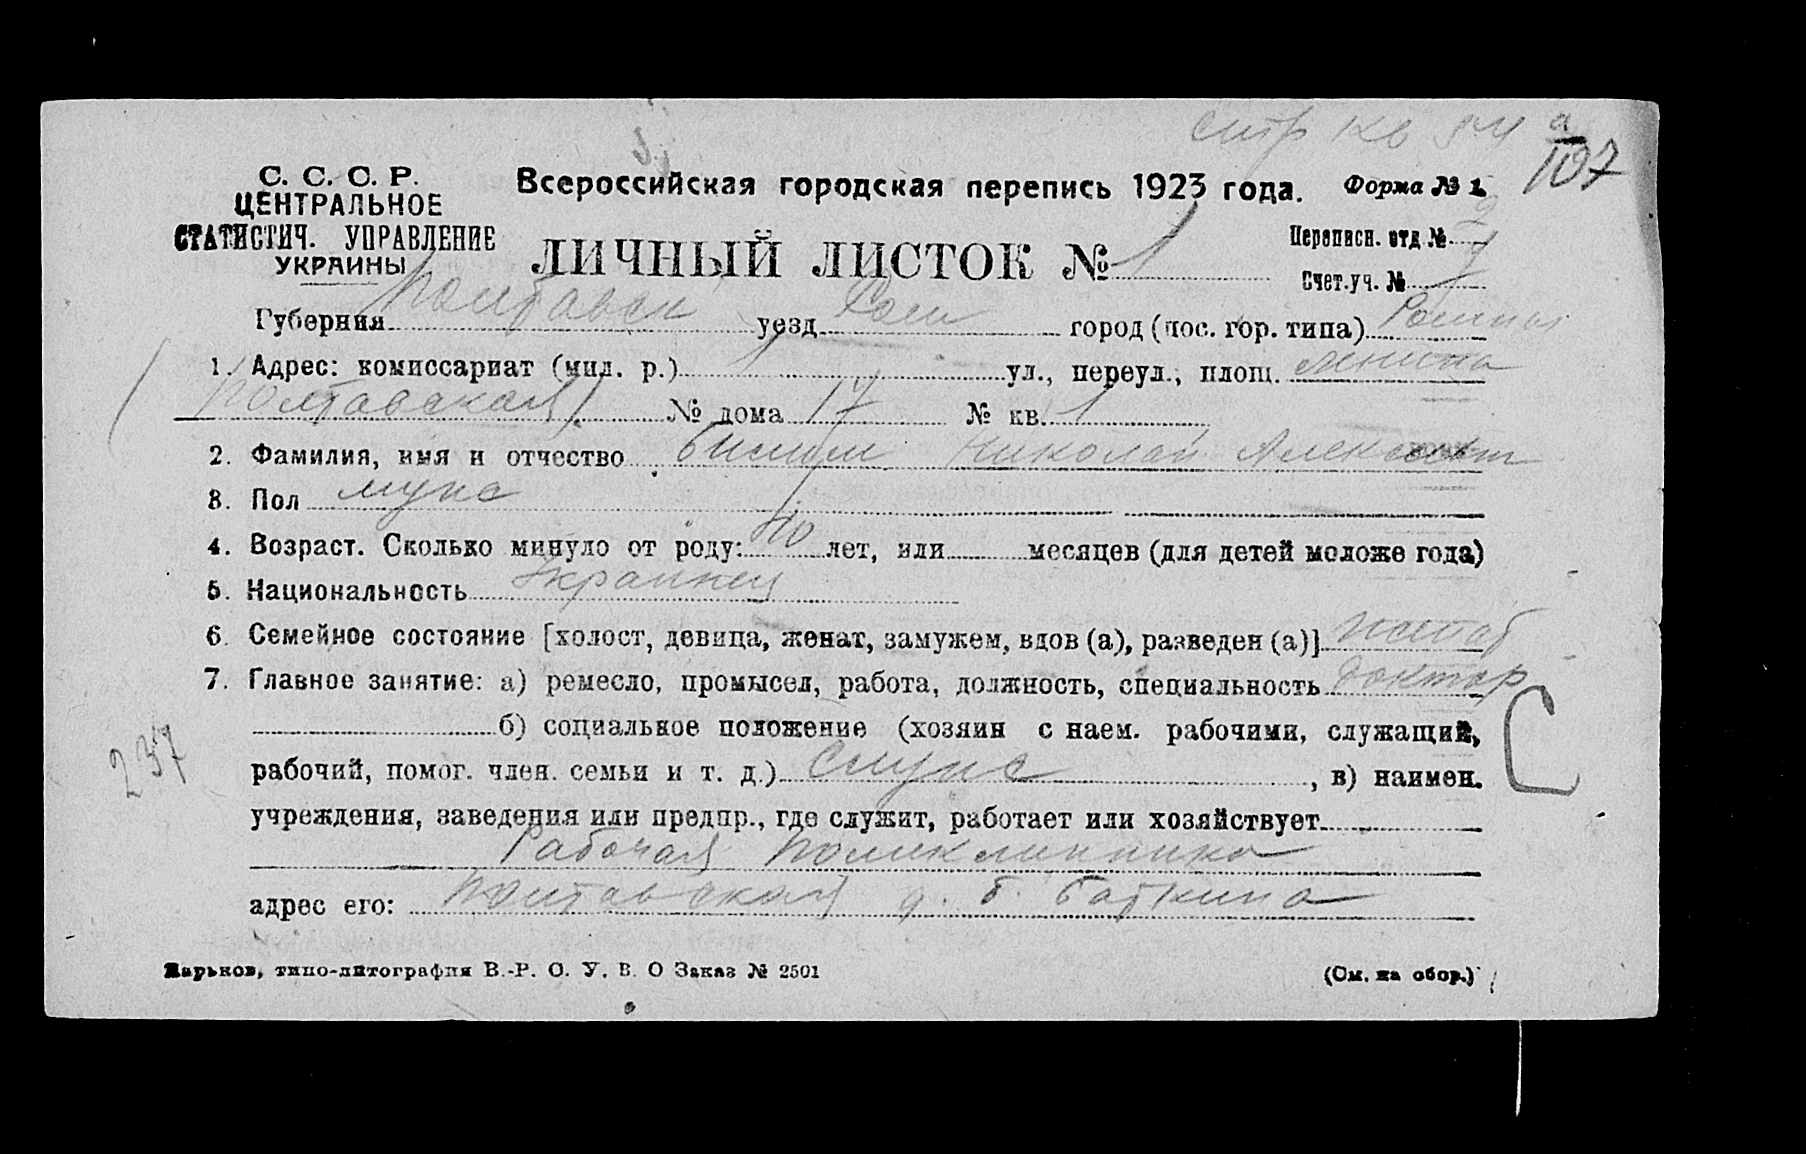 стр кв
а
107
С. С. С. Р.
ЦЕНТРАЛЬНОЕ
СТАТИСТИЧ. УПРАВЛЕНИЕ
УКРАИНЫ
Всероссийская городская перепись 1923 года. Форма № 1.
ЛИЧНЫЙ ЛИСТОК № 1
Переписн. отд №
Счет.уч. №
Губерния Полтавск уезд Ром город (пос. гор. типа) Ромны
1. Адрес: комиссариат (мил. р.) 1 ул., переул., площ. Ленина
(Полтавская) № дома 17 № кв. 1
2. Фамилия, имя и отчество Николай Алексеевич
3. Пол мужс
4. Возраст. Сколько минуло от роду: 40 лет, или месяцев (для детей моложе года)
5. Национальность Украинец
6. Семейное состояние [холост, девица, женат, замужем, вдов (а), разведен (а)] женат
7. Главное занятие: а) ремесло, промысел, работа, должность, специальность доктор
б) социальное положение (хозяин с наем. рабочими, служащий,
рабочий, помог. член. семьи и т. д.) Служ , в) наимен.
учреждения, заведения или предпр., где служит, работает или хозяйствует
Рабочая Поликлиника
адрес его: Полтавская д. б.
237
С
Харьков, типо-литография В.-Р. О. У. В. О Заказ № 2501
(См. на обор.)